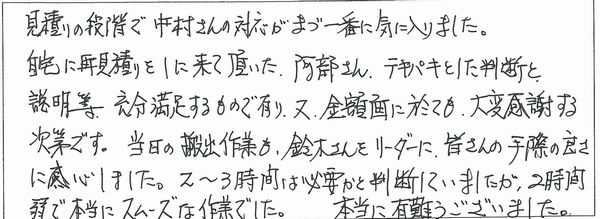 見積りの段階で中村さんの対応がまづ一番に気に入りました。
自宅に再見積りをしに来て頂いた、阿部さん、テキパキとした判断と
説明等、充分満足するもので有り、又、金額面に於ても、大変感謝する
次第です。当日の搬出作業も、鈴木さんをリーダーに、皆さんの手際の良さ
に感心しました。2〜3時間は必要かと判断していましたが、2時間
弱で本当にスムーズな作業でした。 本当に有難うございました。